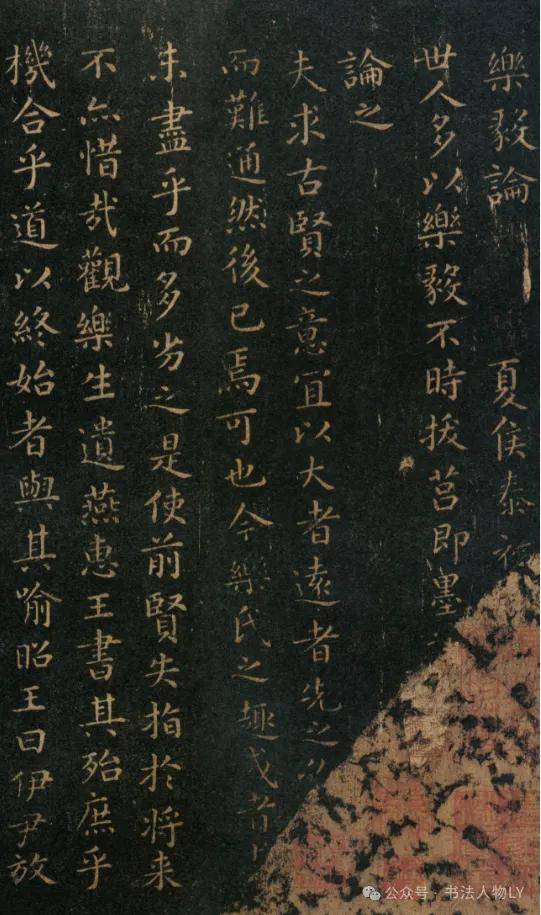 樂毅論 夏侯泰
世人多以樂毅不時拔莒即墨
論之
夫求古賢之意宜以大者遠者先之
而難通然後已焉可也今樂氏之趣或者
未盡乎而多劣之是使前賢失指於将来
不亦惜哉觀樂生遺燕惠王書其殆庶乎
機合乎道以終始者與其喻昭王曰伊尹放
公众号·书法人物LY